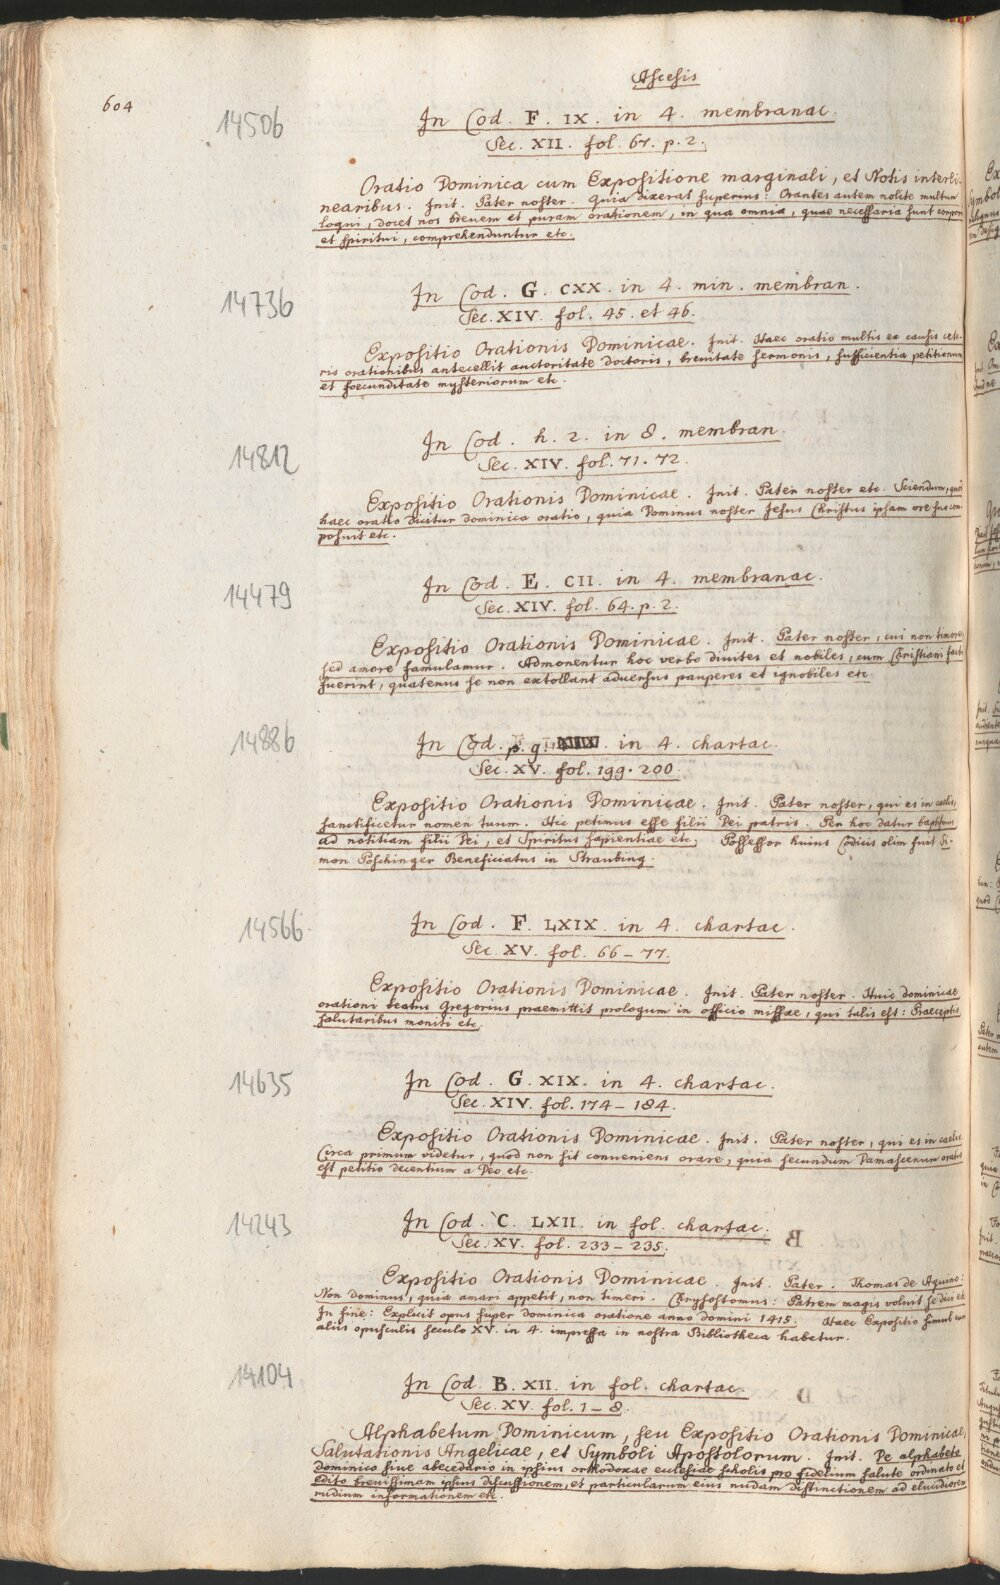 604
Ascesis
14506
In Cod. F. IX. in 4. membranac.
Sec. XII. fol. 67. p. 2.
Oratio Dominica cum Expositione marginali, et Notis interli-
nearibus. Init. Pater noster. Quia dixerat superius: Orantes autem nolite multum
loqui, docet nos brevem et puram orationem, in qua omnia, quae necessaria sunt corpori
et spiritui, comprehenduntur etc.
14736
In Cod. G. CXX. in 4. min. membran.
Sec. XIV. fol. 45. et 46.
Expositio Orationis Dominicae. Init. Haec oratio multis ex causis cete-
ris orationibus antecellit auctoritate doctoris, brevitate sermonis, sufficientia petitionum
et foecunditate mysteriorum etc.
14812
In Cod. h. 2. in 8. membran.
Sec. XIV. fol. 71. 72.
Expositio Orationis Dominicae. Init. Pater noster etc. Sciendum, quod
haec oratio dicitur dominica oratio, quia Dominus noster Jesus Christus ipsam ore suo com-
posuit etc.
14479
In Cod. E. CII. in 4. membranac.
Sec. XIV. fol. 64. p. 2.
Expositio Orationis Dominicae. Init. Pater noster, cui non timore,
sed amore famulamur. Admonentur hoc verbo divites et nobiles, cum Christiani facti
fuerint, quatenus se non extollant adversus pauperes et ignobiles etc.
14886
In Cod. p. g. in 4. chartac.
Sec. XV. fol. 199. 200.
Expositio Orationis Dominicae. Init. Pater noster, qui es in caelis,
sanctificetur nomen tuum. Hic petimus esse filii Dei patris. Per hoc datur baptismus
ad notitiam filii Dei, et Spiritus sapientiae etc. Possessor huius Codicis olim fuit Si-
mon Poschinger Beneficiatus in Straubing.
14566
In Cod. F. LXIX. in 4. chartac.
Sec. XV. fol. 66–77.
Expositio Orationis Dominicae. Init. Pater noster. Huic dominicae
orationi beatus Gregorius praemittit prologum in officio missae, qui talis est: Praeceptis
salutaribus moniti etc.
14635
In Cod. G. XIX. in 4. chartac.
Sec. XIV. fol. 174–184.
Expositio Orationis Dominicae. Init. Pater noster, qui es in caelis.
Circa primum videtur, quod non sit conveniens orare, quia secundum Damascenum oratio
est petitio decentium a Deo etc.
14243
In Cod. C. LXII. in fol. chartac.
Sec. XV. fol. 233–235.
Expositio Orationis Dominicae. Init. Pater. Thomas de Aquino:
Non dominus, quia amari appetit, non timeri. Chrysostomus: Patrem magis voluit se dici etc.
In fine: Explicit opus super dominica oratione anno domini 1415. Haec Expositio simul cum
aliis opusculis seculo XV. in 4. impressa in nostra Bibliotheca habetur.
14104
In Cod. B. XII. in fol. chartac.
Sec. XV. fol. 1–8.
Alphabetum Dominicum, seu Expositio Orationis Dominicae,
Salutationis Angelicae, et Symboli Apostolorum. Init. De alphabeto
dominico sive abecedario in ipsius orthodoxae ecclesiae scholis pro fidelium salute ordinato et
edito brevissimam ipsius discussionem, et particularum eius nudam distinctionem ad elucidiorem
rudium informationem etc.